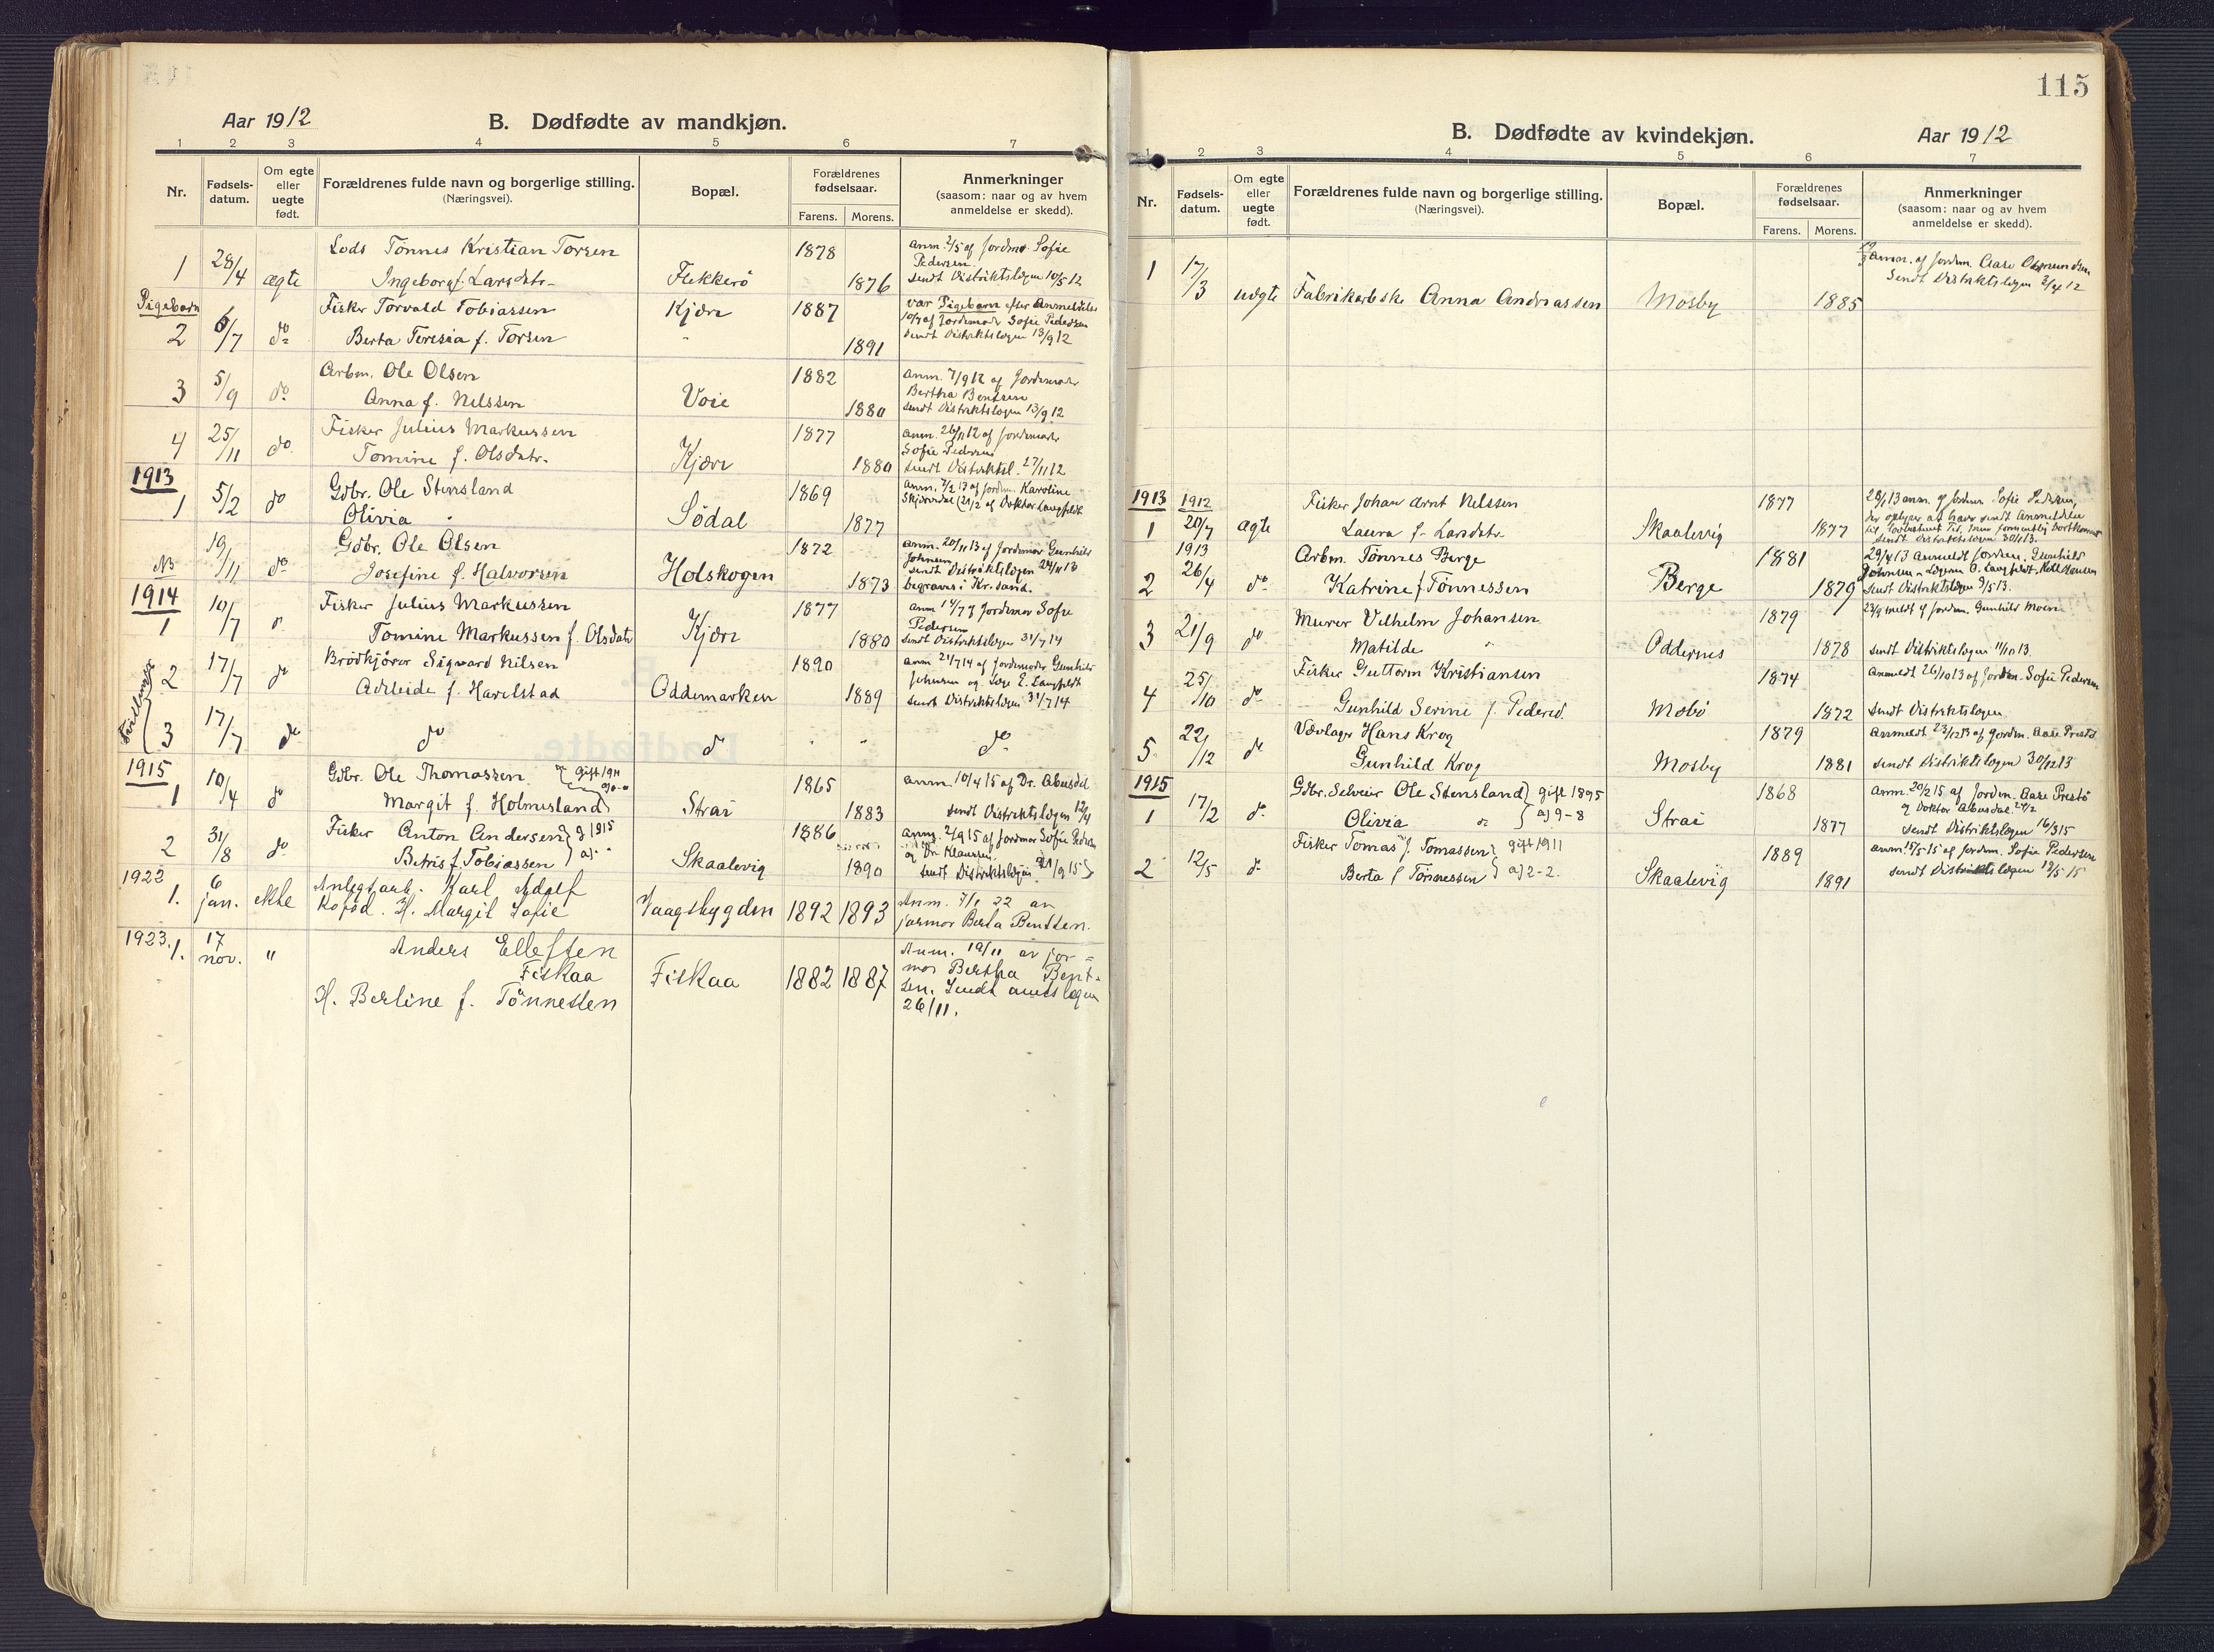 Aar 1912
B. Dødfødte av mandkjøn.
1 2 3 4 5 6 7
Nr.
Fødsels-
datum.
Om egte
eller
uegte
født.
Forældrenes fulde navn og borgerlige stilling.
(Næringsvei).
Bopæl.
Forældrenes
fødselsaar.
Farens. Morens.
Anmerkninger
(saasom: naar og av hvem
anmeldelse er skedd).
Lods Tønnes Kristian Torsen 1878 anm. 2/5 af Jordmo. Sofie
Pedersen
1 28/4 ægte Ingeborg f. Larsdatr. Flekkerö 1876 sendt Distriktslægen 10/5 12
Pigebarn Fisker Torvald Tobiassen Kjære 1887 var Pigebarn efter Anmeldelse
10/7 af Jordemoder Sofie Pedersen
2 6/7 do Berta Teresia f. Torsen " 1891 sendt Distriktslægen 13/9 12
Arbm. Ole Olsen 1882 anm. 7/9 12 af Jordemoder
Bertha Bentsen
3 5/9 do Anna f. Nilssen Voie 1880 sendt Distriktslægen 13/9 12
Fisker Julius Markussen 1877 anm. 26/11 12 af Jordemoder
Sofie Pedersen
4 25/11 do Tomine f. Olsdatr. Kjære 1880 sendt Distriktsl. 27/11 12
1913
Gdbr. Ole Stensland 1869 anm. 7/2 13 af Jordm. Karoline
1 5/2 do Olivia " Södal 1877
Gdbr. Ole Olsen 1872 anm. 20/11 13 af Jordmor Gunhild
Johnsen
sendt Distriktslægen 24/11 13
19/11 do Josefine f. Halvorsen Holskogen 1873 begraves i Kr.sand.
1914
Fisker Julius Markussen 1877 Jordmor Sofie
Pedersen
1 10/7 do Tomine Markussen f. Olsdatr Kjære 1880 sendt Distriktslægen 31/7 14
Brödkjörer Sigvard Nilsen 1890 anm 21/7 14 af Jordemoder Gunhild
Johnsen og Læge E. Langfeldt
2 17/7 do Adeleide f. Havelstad Oddemarken 1889 sendt Distriktslægen 31/7 14
Tvillinger
3 17/7 do do do " " do
1915
Gdbr. Ole Thomassen gift 1911 1865 anm. 10/4 15 af Dr. Abusdal
1 10/4 do Margit f. Holmesland Strai 1883 sendt Distriktslægen 12/4
Fisker Anton Andersen g 1915 1886 anm. 2/9 15 af Jordmor Sofie Pedersen
og Dr. Klaussen.
2 31/8 do Betris f. Tobiassen Skaalevig 1890 sendt Distriktslægen 21/9 15
1922
1. 6 jan. ekte Anlegsarb. Karl Adolf
Kofod. H. Margit Sofie Vaagsbygden 1892 1893 Anm. 7/1 22 av
jormor Berta Bentsen.
1923.
1. 17 nov. " Anders Ellefsen
Fiskaa
H. Berline f. Tönnessen Fiskaa 1882 1887 Anm. 19/11 av jor-
mor Bertha Bent-
sen. Sendt amtslægen
26/11.
115
B. Dødfødte av kvindekjøn.
Aar 1912
1 2 3 4 5 6 7
Nr.
Fødsels-
datum.
Om egte
eller
uegte
født.
Forældrenes fulde navn og borgerlige stilling.
(Næringsvei).
Bopæl.
Forældrenes
fødselsaar.
Farens. Morens.
Anmerkninger
(saasom: naar og av hvem
anmeldelse er skedd).
anm. af Jordm. Aase Osmundsen
Sendt Distriktslægen 2/4 12
1 17/3 uægte Fabrikarbske Anna Andreassen Mosby 1885
1913 1912
Fisker Johan Arnt Nilssen 1877 28/1 13 anm. af Jordm. Sofie Pedersen,
der oplyser at have sendt Anmeldelse
1 20/7 ægte Laura f. Larsdatr. Skaalevig 1877
sendt Distriktslægen 30/1 13.
1913
Arbm. Tönnes Berge 1881 29/4 13 anmeldt Jordm. Gunhild
2 26/4 do Katrine f. Tönnessen Berge 1879 sendt Distriktslægen 9/5 13.
Murer Vilhelm Johansen 1879 23/9 meldt af Jordm. Gunhild Moen
3 21/9 do Matilde " Oddernes 1878 sendt Distriktslægen 11/10 13.
Fisker Guttorm Kristiansen 1874 anmeldt 26/10 13 af Jordm. Sofie Pedersen
4 25/10 do Gunhild Serine f. Pedersd. Mebö 1872 sendt Distriktslægen
Hans Krog 1879 anmeldt 23/12 13 af Jordm. Aase Prestö
5 22/12 do Gunhild Krog Mosby 1881 sendt Distriktslægen 30/12 13
1915
Gdbr. Selveier Ole Stensland gift 1895 1868 anm. 20/2 15 af Jordm. Aase Prestö
og Doktor Abusdal 27/2
1 17/2 do Olivia do a) 9-8 Strai 1877 sendt Distriktslægen 16/3 15
Fisker Tomas f. Tomassen gift 1911 1889 anm. 15/5 15 af Jordm. Sofie Pedersen
2 12/5 do Berta f Tönnessen a) 2-2. Skaalevig 1891 sendt Distriktslægen 19/5 15